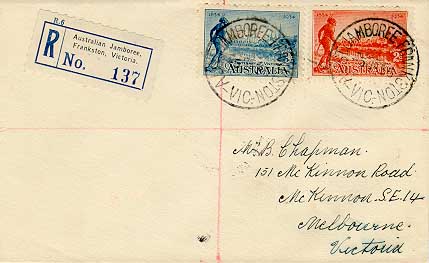 R.6
R
Australian Jamboree,
Frankston, Victoria.
No. 137
1834 1934
AUSTRALIA
1834 1934
AUSTRALIA
JAMBOREE FRANKSTON
VIC-A
JAMBOREE FRANKSTON
VIC-A
Mr. B. Chapman.
151 Mc Kinnon Road
Mc Kinnon. S.E. 14
Melbourne.
Victoria